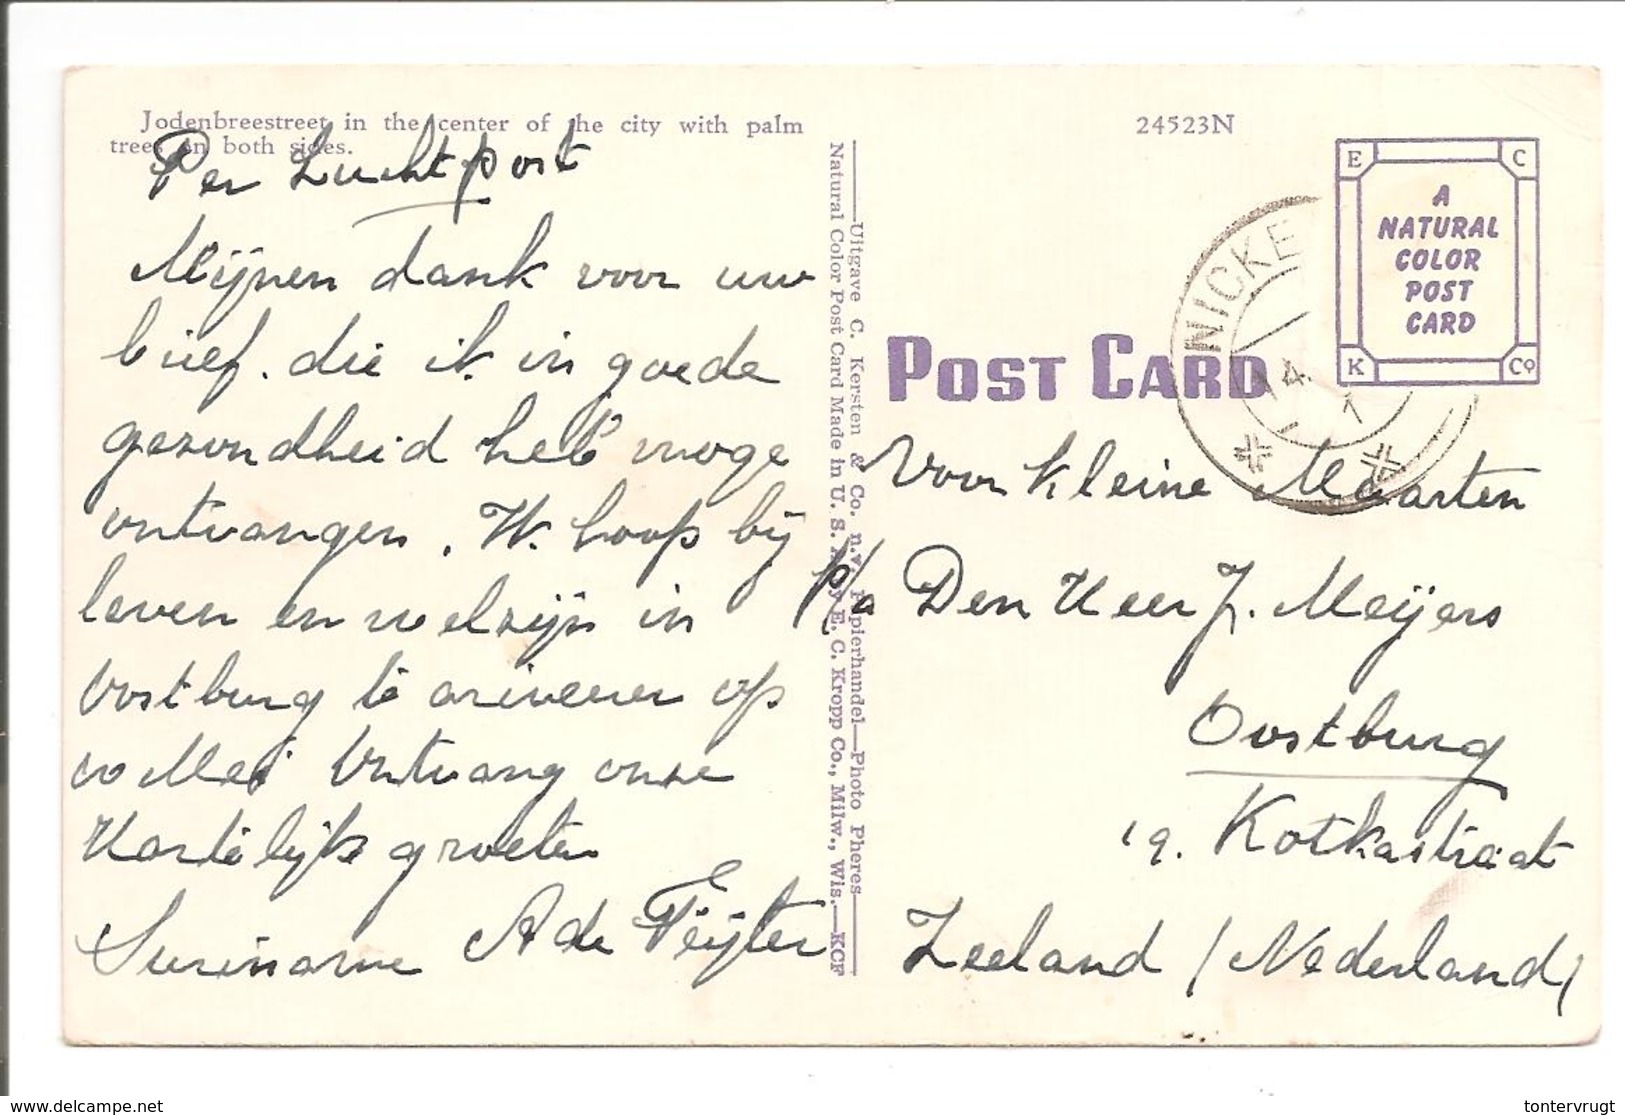 Jodenbreestreet in the center of the city with palm
trees on both sides.
Per Luchtpost
Mijnen dank voor uw
brief. die ik in goede
gezondheid heb moge
ontvangen. W. hoop bij
leven en welzijn in
Oostburg te ariveeren op
20 Mei Ontvang onze
Hartelijke groeten
Suriname A de Feijter
Uitgave C. Kersten & Co. n.v. Papierhandel—Photo Pheres
Natural Color Post Card Made in U. S. A. by E. C. Kropp Co., Milw., Wis.—KCF
24523N
E C
A
NATURAL
COLOR
POST
CARD
K Co
NICKE
14 1
POST CARD
Voor kleine Maarten
p/a Den Heer J. Meijers
Oostburg
19. Kotkastraat
Zeeland / Nederland /
www.delcampe.net
tontervrugt